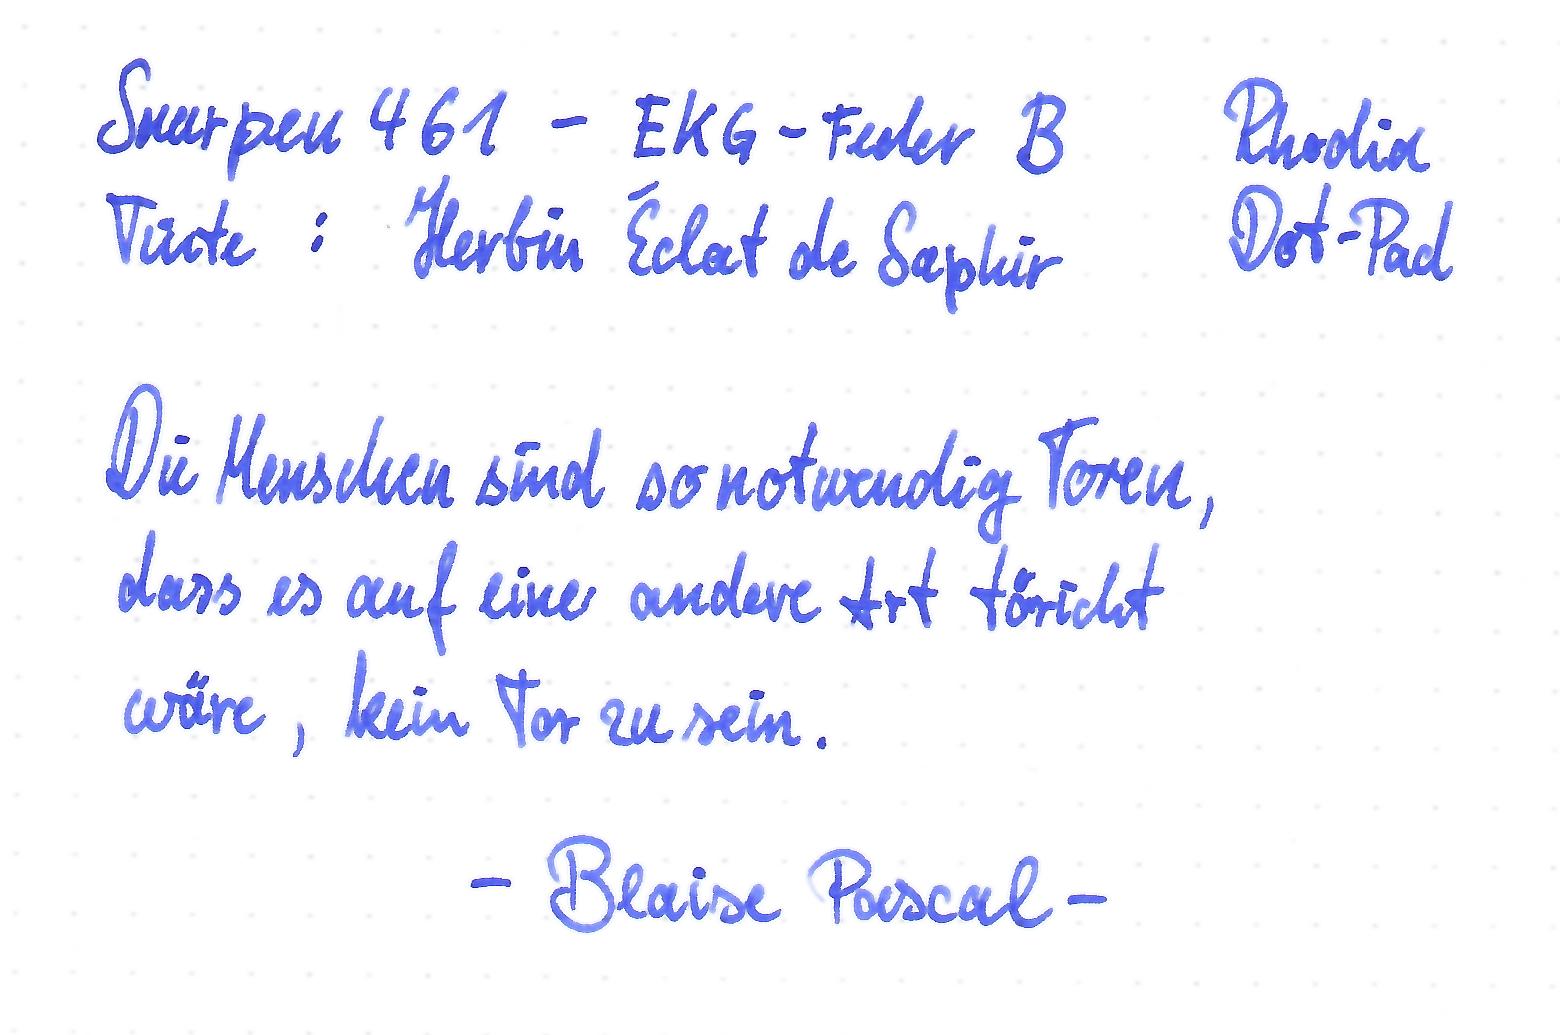 Snurpen 461 – EKG-Feder B Rhodia
Tinte : Herbin Éclat de Saphir Dot-Pad
Die Menschen sind so notwendig Toren,
dass es auf eine andere Art töricht
wäre, kein Tor zu sein.
– Blaise Pascal –